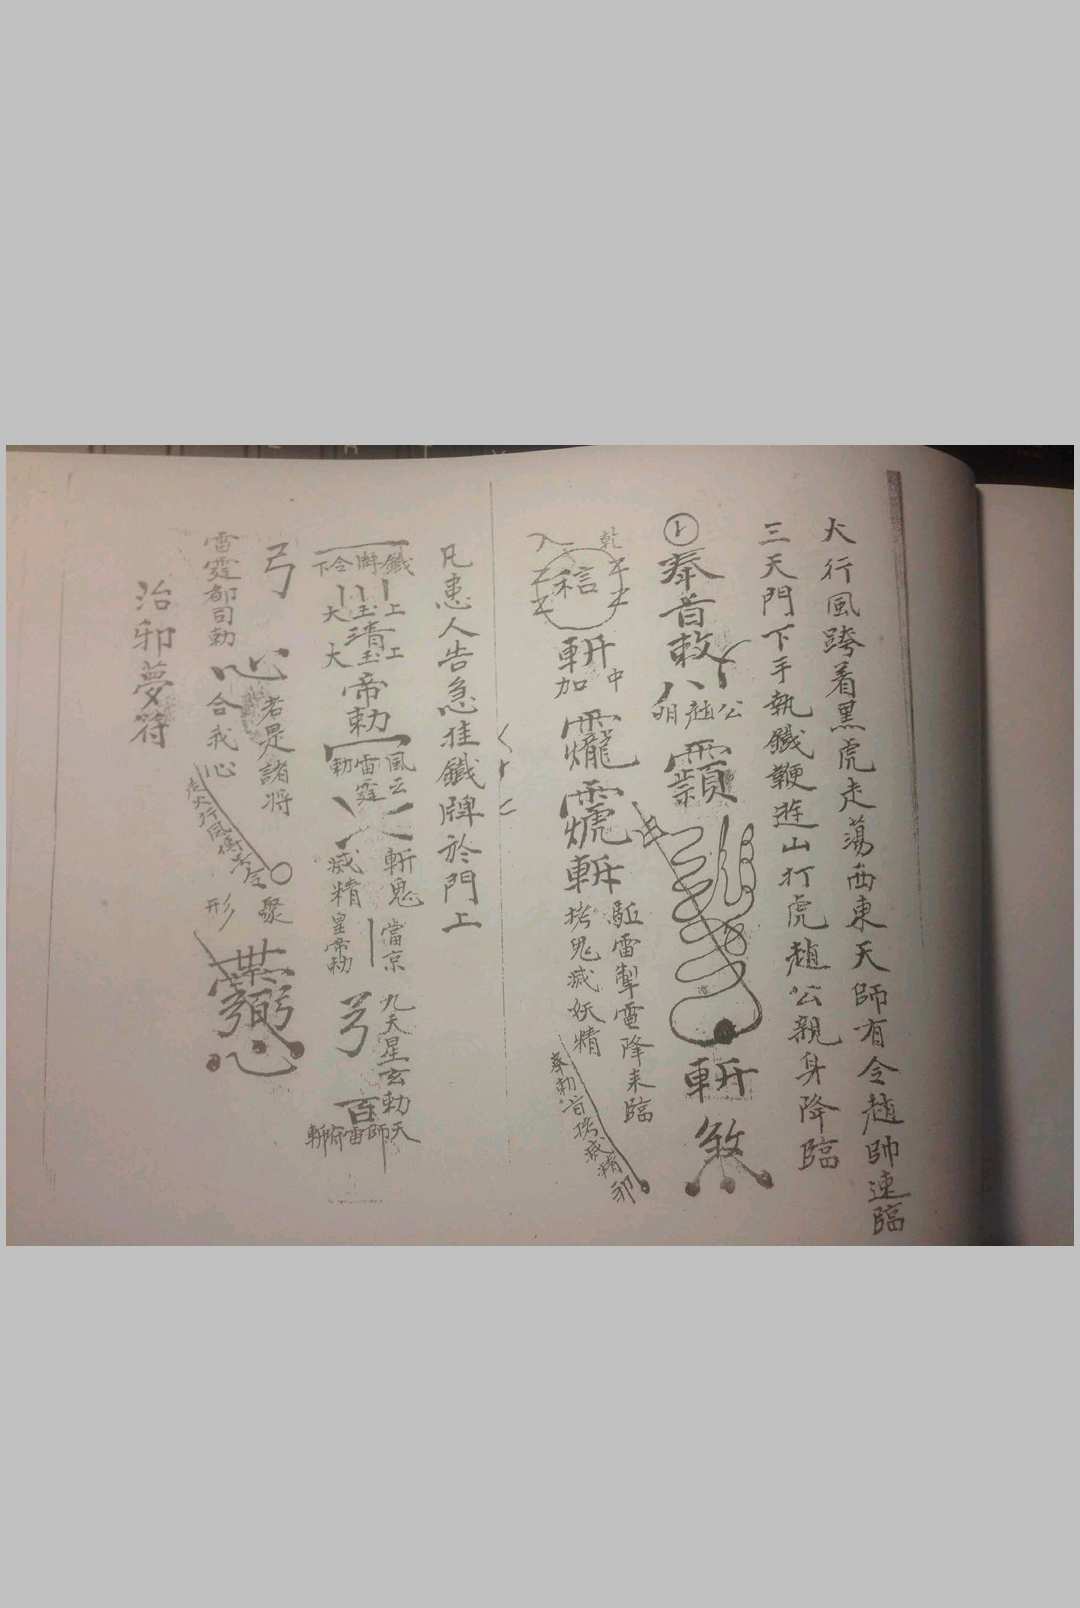 火行風跨着黑虎走蕩西東天師有令趙帥速臨
三天門下手執鐵鞭遊山打虎趙公親身降臨
奉首敕
八
明趙公
斬
煞
乾
信
斬
中
加
斬
駈雷掣電降來臨
拷鬼滅妖精
凡患人告急挂鐵牌於門上
上玉大
清
上玉大
帝勅
風云
雷霆
勅
斬鬼
滅精
當京
皇帝勅
九天星玄勅
弓
百
天師雷府斬
弓
心
若是諸將
聚
形
雷霆都司勅
合我心
治邪夢符